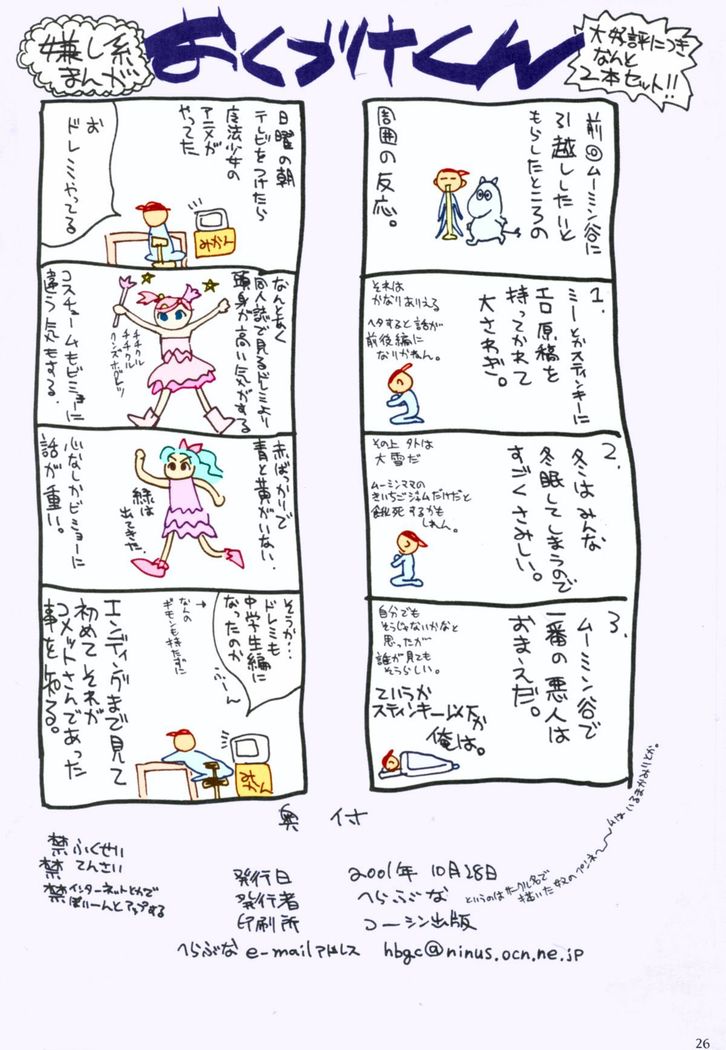 嫌し系
まんが
おくづけくん
大好評につき
なんと
2本セット!!
前回ムーミン谷に
引越ししたいと
もらしたところの
周囲の反応。
1.
ミーとかスティンキーに
エロ原稿を
持ってかれて
大さわぎ。
それは
かなりありえる
ヘタすると話が
前後編に
なりかねん。
2.
冬はみんな
冬眠してしまうので
すごくさみしい。
その上外は
大雪だ
ムーミンママの
きいちごジャムだけだと
餓死するかも
しれん。
3.
ムーミン谷で
一番の悪人は
おまえだ。
自分でも
そうじゃないかなと
思ったが
誰が見ても
そうらしい。
ていうか
スティンキー以下か
俺は。
日曜の朝
テレビをつけたら
魔法少女の
アニメが
やってた
お
ドレミやってる
みかん
なんとなく
同人誌で見るドレミより
頭身が高い気がする
コスチュームもビミョーに
違う気もする。
赤ばっかりで
青と黄がいない.
心なしかビショーに
話が重い。
緑は
出てきた.
そうか…
ドレミも
中学生編に
なったのか
ふーん
なんの
ギモンも持たずに
エンディングまで見て
初めてそれが
コメットさんであった
事を知る。
みかん
奥付
禁ふくせい
禁てんさい
禁インターネットとかで
ばいーんとアップする
発行日 2001年 10月28日
発行者 へらぶな
というのはサークル名で
描いた奴のペンネ〜〜ムはいるまかみりとか。
印刷所 コーシン出版
へらぶな e-mailアドレス hbgc@ninus.ocn.ne.jp
26